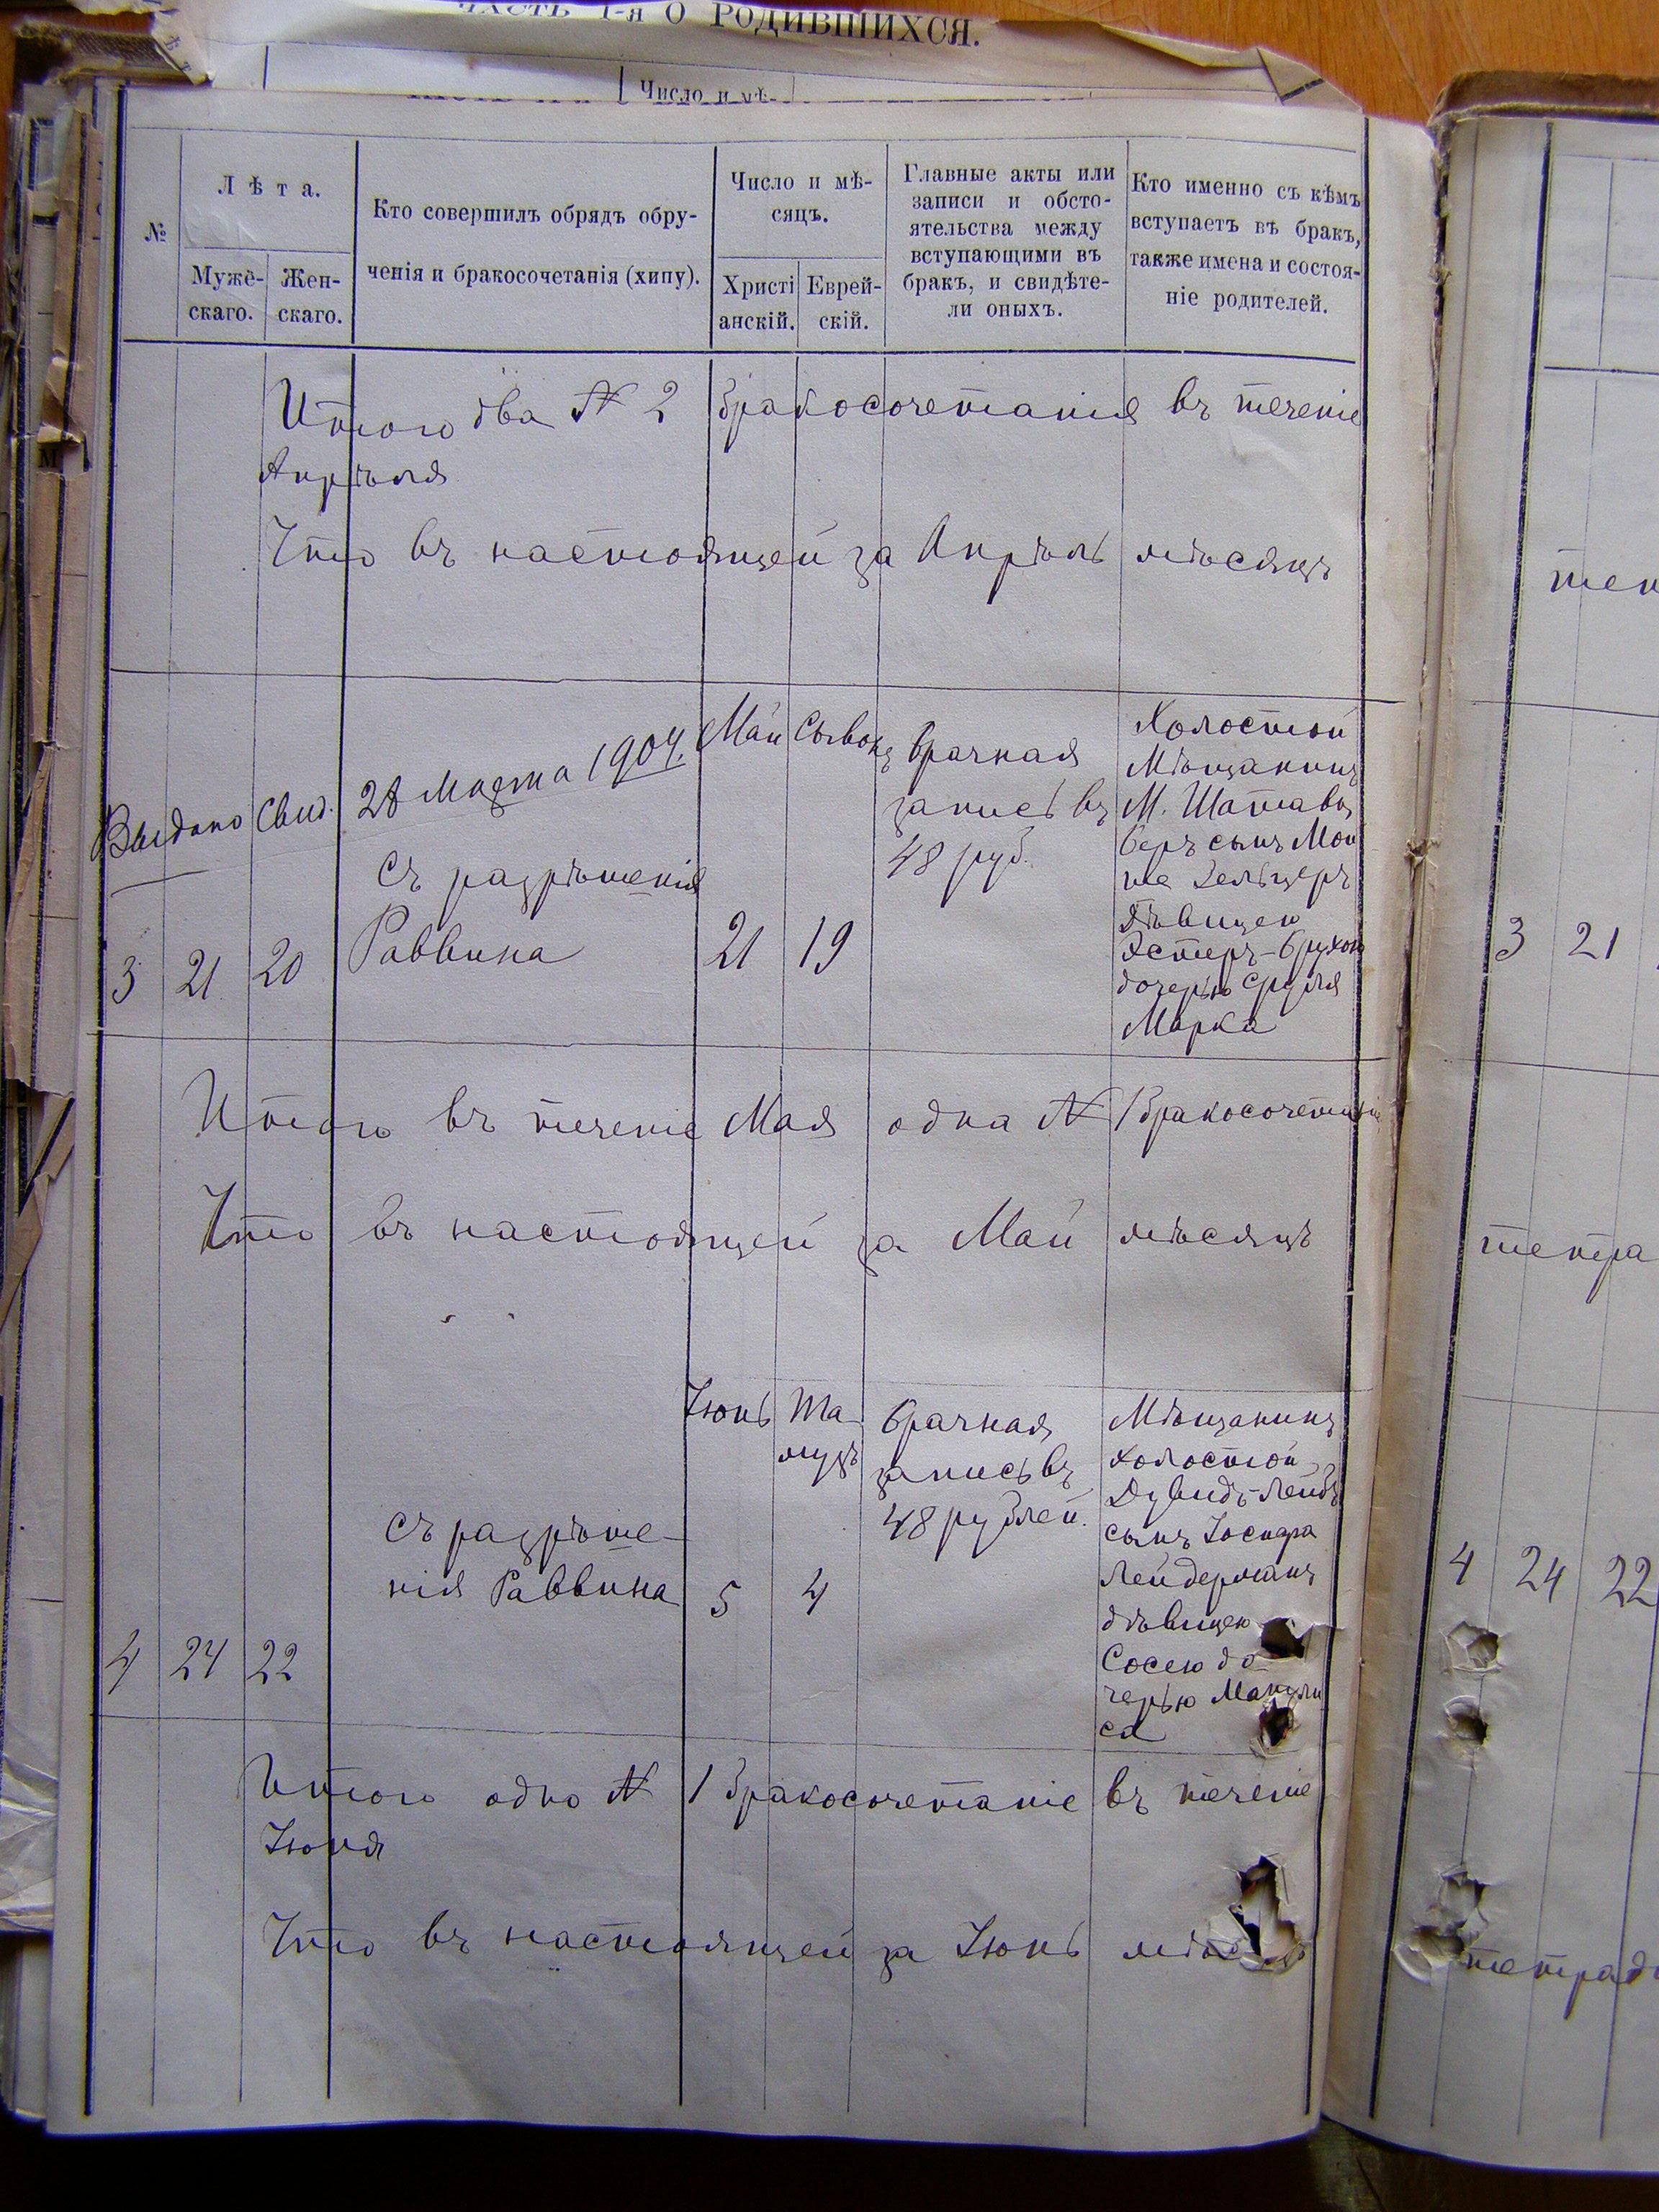 ЧАСТЬ I-я О РОДИВШИХСЯ.
Число и мѣ-
№
Лѣта.
Мужескаго.
Женскаго.
Кто совершилъ обрядъ обру-
ченія и бракосочетанія (хипу).
Число и мѣ-
сяцъ.
Христі
анскій.
Еврей-
скій.
Главные акты или
записи и обсто-
ятельства между
вступающими въ
бракъ, и свидѣте-
ли оныхъ.
Кто именно съ кѣмъ
вступаетъ въ бракъ,
также имена и состоя-
ніе родителей.
Итого два № 2 бракосочетанія въ теченіе
Апрѣля
Что въ настоящей за Апрѣль мѣсяцъ
Выдано Свид. 28 Марта 1904.
3 21 20
съ разрѣшенія
Раввина
Май
21
Сывонъ
19
брачная
запись въ
48 руб.
Холостой
Мѣщанинъ
М. Шатава
Беръ сынъ Мош
ше Зельцеръ
Дѣвицею
Эстеръ-Брухою
дочерью Сруля
Марка
Итого въ теченіе Мая одна № 1 бракосочетаніе
Что въ настоящей за Май мѣсяцъ
4 24 22
съ разрѣше-
нія Раввина
Іюнь
5
Та-
музъ
4
брачная
запись въ
48 рублей.
Мѣщанинъ
холостой
Дувидъ-Лейбъ
сынъ
Лейдерманъ
дѣвицею
Сосею до-
черью
са
Итого одно № 1 бракосочетаніе въ теченіе
Іюня
Что въ настоящей за Іюнь
3 21
тетра
4 24 22